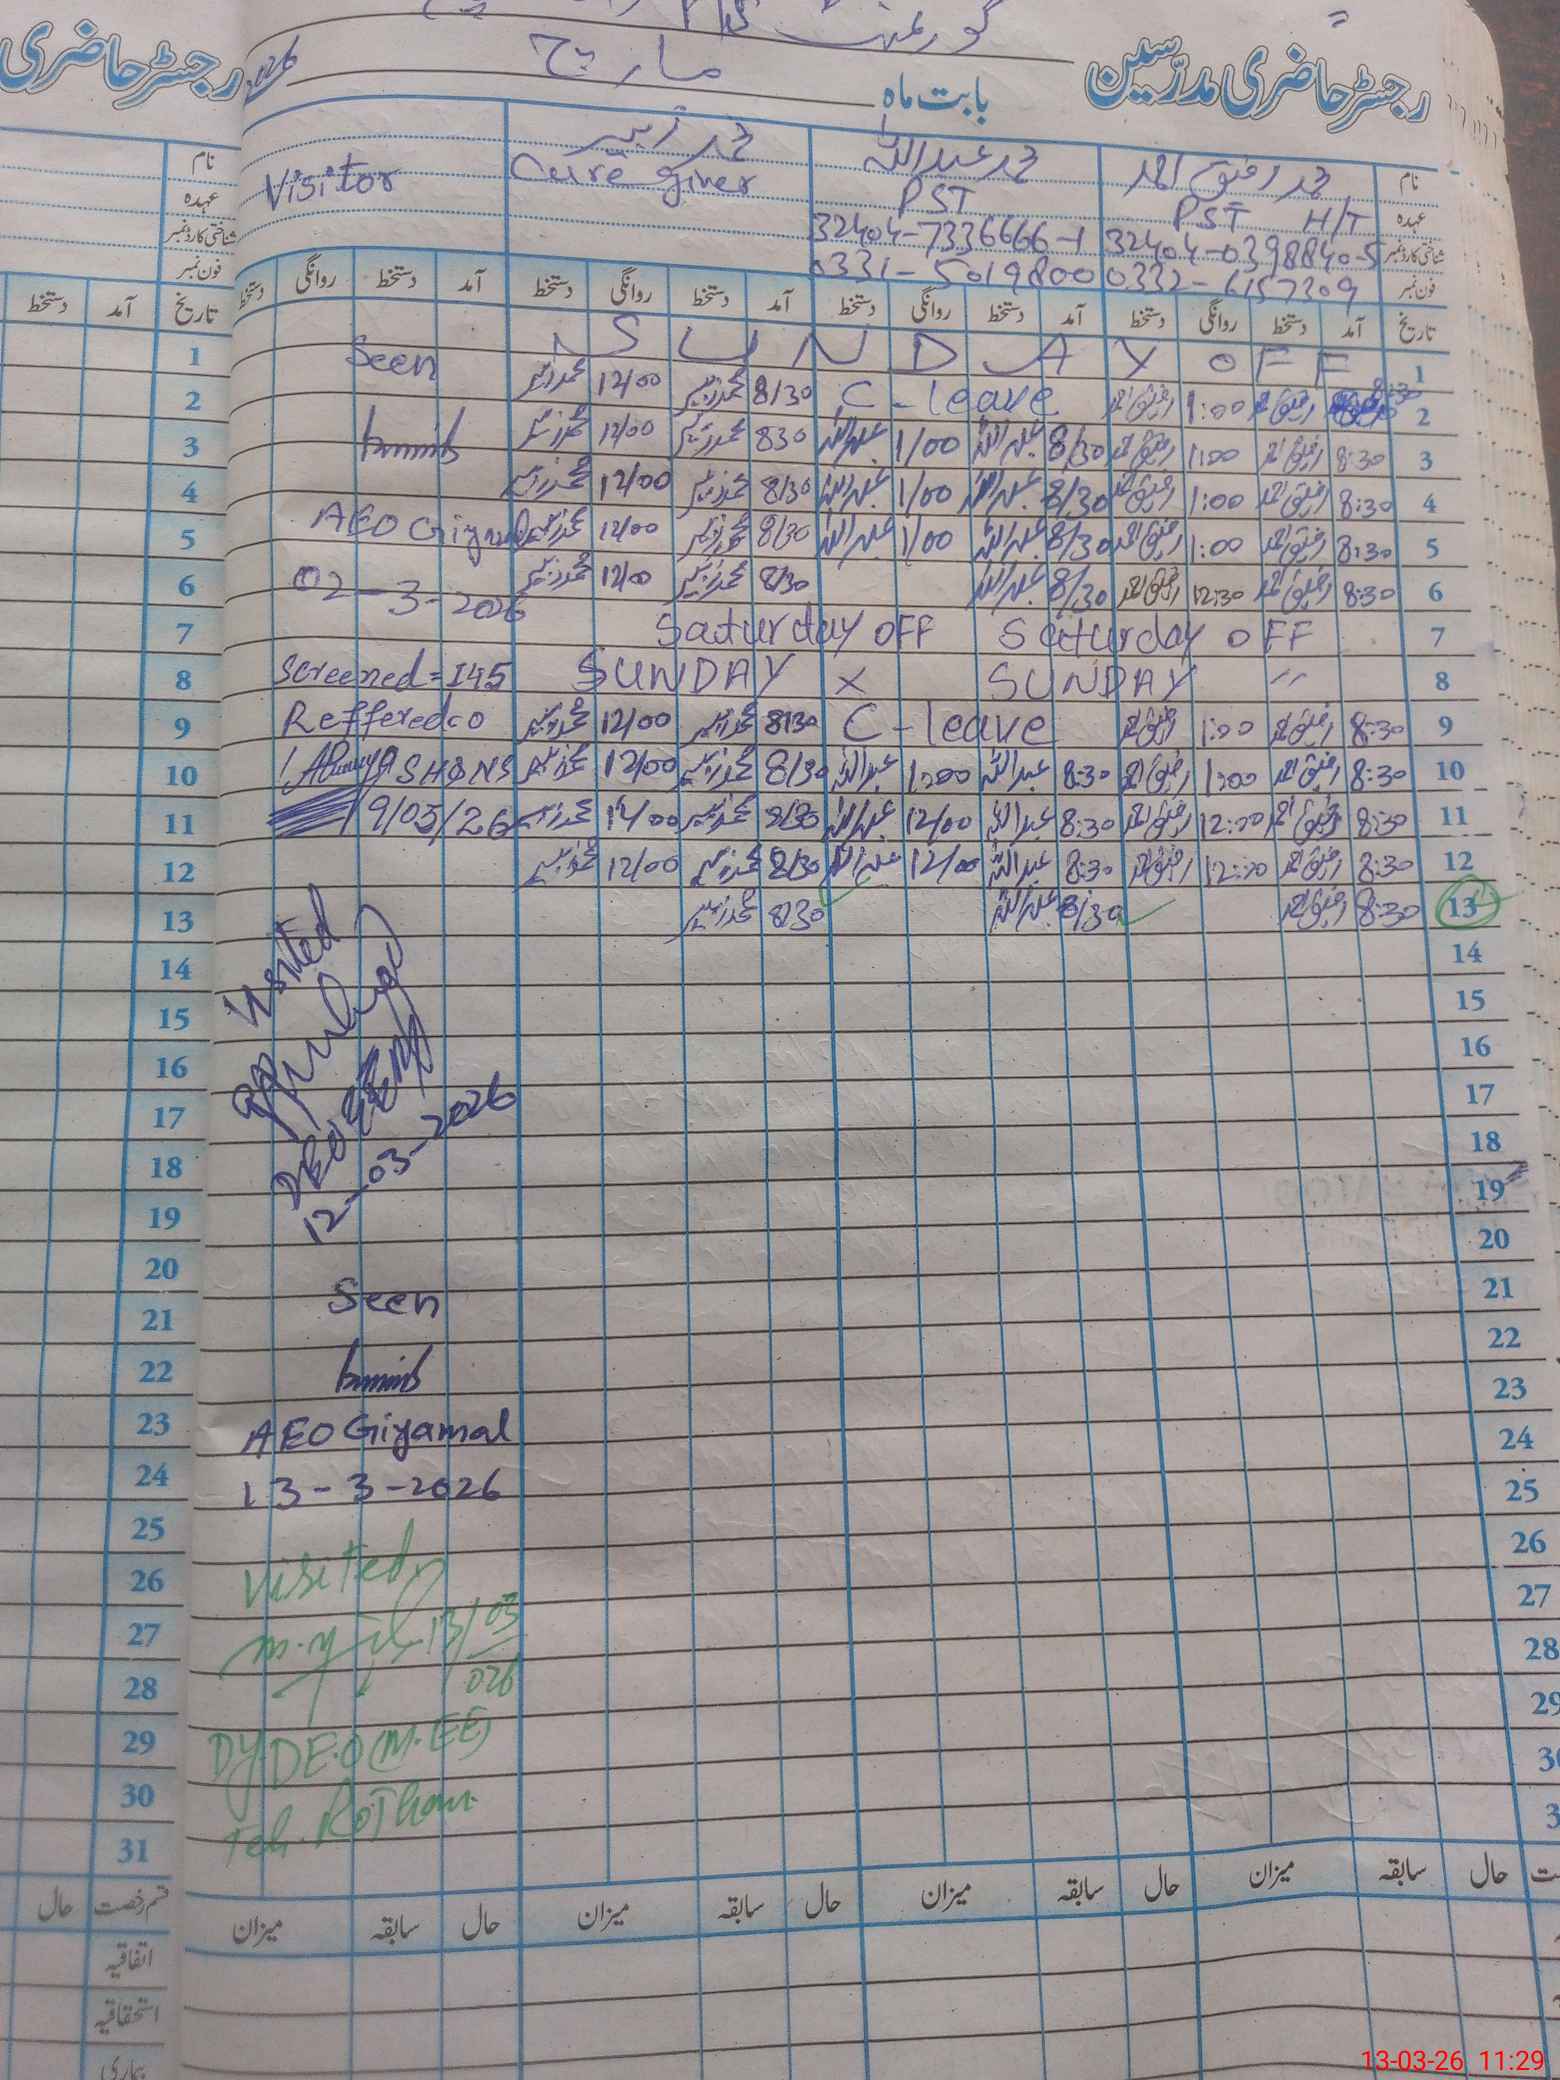 رجسٹر حاضری مدرسین
بابت ماہ مارچ
رجسٹر حاضری
نام محمد رفیق احمد محمد عبداللہ محمد زبیر
عہدہ PST H/T PST Care Giver Visitor
شناختی کارڈ نمبر 32404-0398840-5 32404-7336666-1
فون نمبر 0332-6157309 0331-5019800
تاریخ آمد دستخط روانگی دستخط آمد دستخط روانگی دستخط آمد دستخط روانگی دستخط آمد دستخط روانگی دستخط
1 SUNDAY OFF
2 8:30 رفیق احمد 1:00 رفیق احمد C-leave 8/30 محمد زبیر 12/00 محمد زبیر Seen
3 8:30 رفیق احمد 1:00 رفیق احمد 8/30 عبداللہ 1/00 عبداللہ 830 محمد زبیر 12/00 محمد زبیر
4 8:30 رفیق احمد 1:00 رفیق احمد 8/30 عبداللہ 1/00 عبداللہ 8/30 محمد زبیر 12/00 محمد زبیر
5 8:30 رفیق احمد 1:00 رفیق احمد 8/30 عبداللہ 1/00 عبداللہ 8/30 محمد زبیر 12/00 محمد زبیر AEO Giyamal
6 8:30 رفیق احمد 12:30 رفیق احمد 8/30 عبداللہ 8/30 محمد زبیر 12/00 محمد زبیر 02-3-2026
7 Saturday OFF Saturday OFF
8 SUNDAY X SUNDAY " Screened=145
9 8:30 رفیق احمد 1:00 رفیق احمد C-leave 8130 محمد زبیر 12/00 محمد زبیر Reffered
10 8:30 رفیق احمد 1:00 رفیق احمد 8:30 عبداللہ 1:00 عبداللہ 8/30 محمد زبیر 12/00 محمد زبیر SH&NS
11 8:30 رفیق احمد 12:00 رفیق احمد 8:30 عبداللہ 12/00 عبداللہ 8/30 محمد زبیر 12/00 محمد زبیر 9/03/26
12 8:30 رفیق احمد 12:00 رفیق احمد 8:30 عبداللہ 12/00 عبداللہ 8/30 محمد زبیر 12/00 محمد زبیر
13 8:30 رفیق احمد 8/30 عبداللہ 8/30 محمد زبیر
14
15
16
17
18
19
20
21
22
23
24
25
26
27
28
29
30
Visited
12-03-2026
Seen
AEO Giyamal
13-3-2026
Visited
13/03
026
DY.DEO (M.EE)
Teh. Rojhan
حال سابقہ میزان حال سابقہ میزان حال سابقہ میزان حال سابقہ میزان
نام
عہدہ
شناختی کارڈ نمبر
فون نمبر
تاریخ آمد دستخط
1
2
3
4
5
6
7
8
9
10
11
12
13
14
15
16
17
18
19
20
21
22
23
24
25
26
27
28
29
30
31
قسم رخصت حال
اتفاقیہ
استحقاقیہ
بیماری
13-03-26 11:29